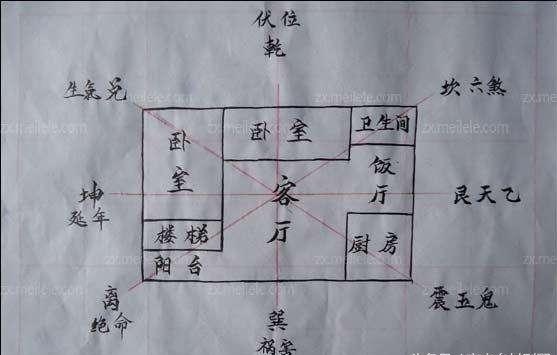 伏位
乾
生氣兑
坎六煞
卧室
卧室
卫生间
饭厅
坤
延年
客厅
艮天乙
楼梯
阳台
厨房
离
绝命
巽
祸害
震五鬼
zx.meilele.com
zx.meilele.com
zx.meilele.com
zx.meilele.com
zx.meilele.com
zx.meilele.com